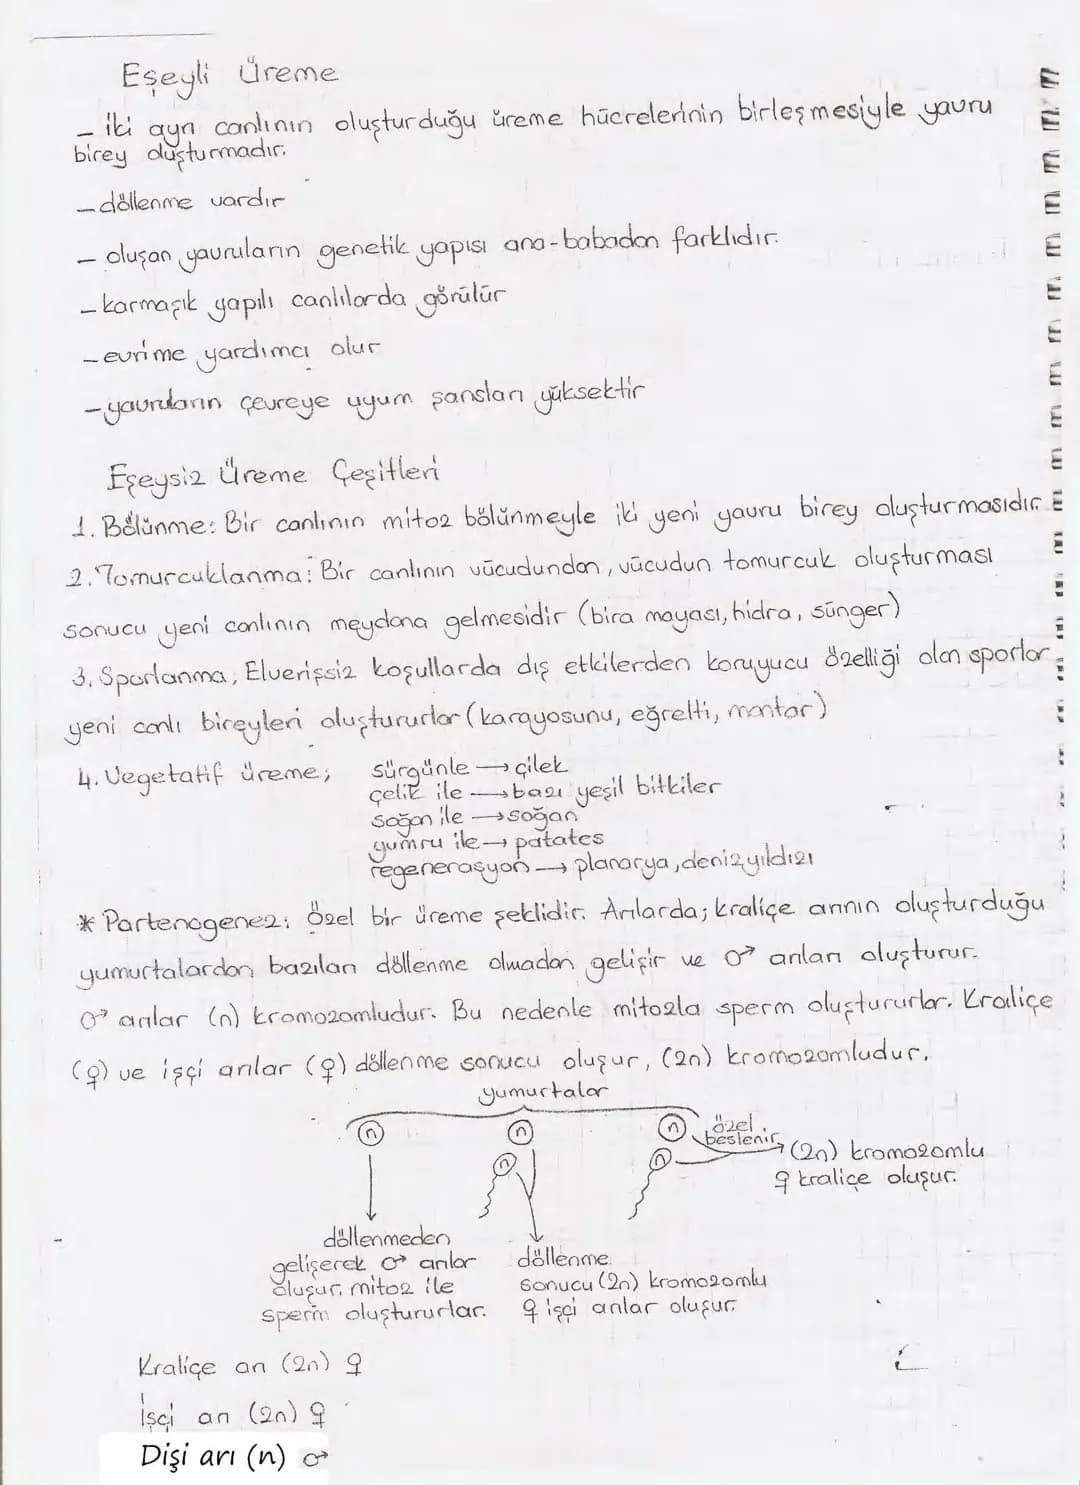 Eşeyli Üreme
– iki ayrı canlının oluşturduğu üreme hücrelerinin birleşmesiyle yavru
birey oluşturmadır.
– döllenme vardır
– oluşan yavruların genetik yapısı ana-babadan farklıdır.
– karmaşık yapılı canlılarda görülür
– evrime yardımcı olur
– yavruların çevreye uyum şansları yüksektir
Eşeysiz Üreme Çeşitleri
1. Bölünme: Bir canlının mitoz bölünmeyle iki yeni yavru birey oluşturmasıdır.
2. Tomurcuklanma: Bir canlının vücudundan, vücudun tomurcuk oluşturması
sonucu yeni canlının meydana gelmesidir (bira mayası, hidra, sünger)
3. Sporlanma; Elverişsiz koşullarda dış etkilerden koruyucu özelliği olan sporlar,
yeni canlı bireyleri oluştururlar (karayosunu, eğrelti, mantar)
4. Vegetatif üreme; sürgünle → çilek
çelik ile → bazı yeşil bitkiler
soğan ile → soğan
yumru ile → patates
regenerasyon → planarya, deniz yıldızı
* Partenogenez: Özel bir üreme şeklidir. Arılarda; kraliçe arının oluşturduğu
yumurtalardan bazıları döllenme olmadan gelişir ve ♂ arıları oluşturur.
♂ arılar (n) kromozomludur. Bu nedenle mitozla sperm oluştururlar. Kraliçe
(♀) ve işçi arılar (♀) döllenme sonucu oluşur, (2n) kromozomludur.
yumurtalar
n n n özel
beslenir
n n (2n) kromozomlu
♀ kraliçe oluşur.
döllenmeden
gelişerek ♂ arılar
oluşur. mitoz ile
sperm oluştururlar.
döllenme
sonucu (2n) kromozomlu
♀ işçi arılar oluşur.
Kraliçe arı (2n) ♀
İşçi arı (2n) ♀
Dişi arı (n) ♂